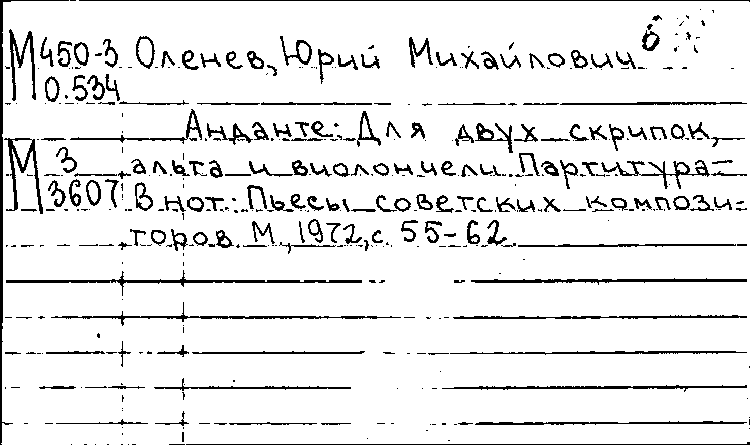 М 450-3 Оленев, Юрий Михайлович 6
0.534
Анданте: Для двух скрипок,
М 3 альта и виолончели. Партитура.–
3607 В нот.: Пьесы советских компози-
торов. М., 1972, с. 55-62.